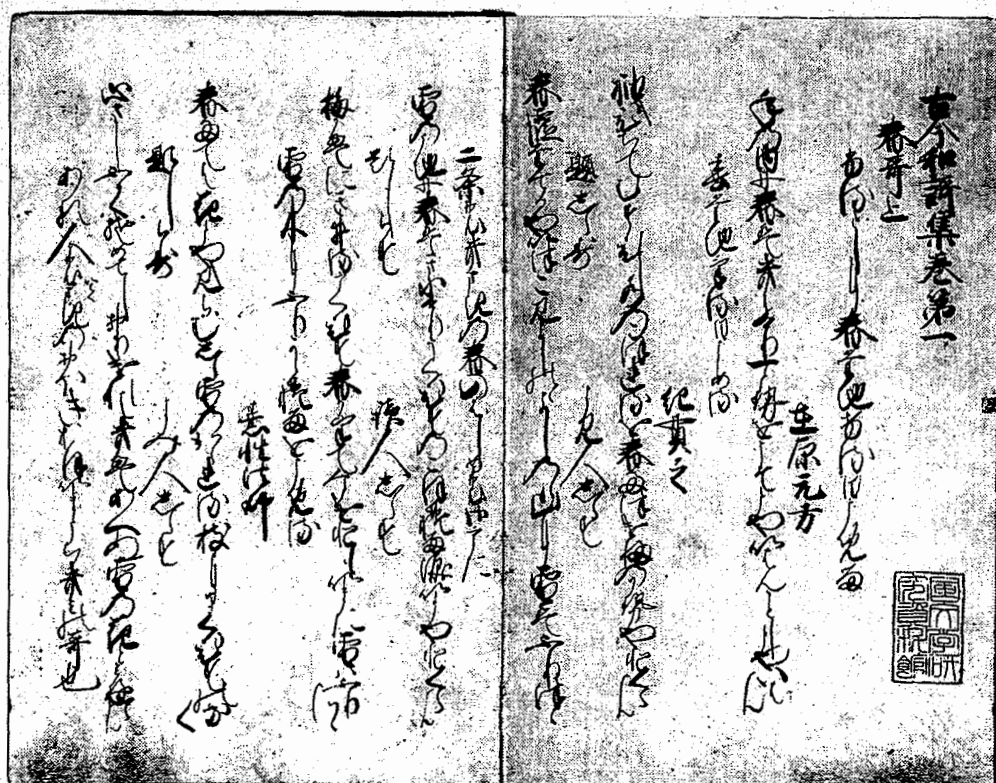 古今和謌集巻第一
春哥上
ふるとしに春たちける日よめる
在原元方
年の内に春はきにけり一とせをこそとやいはんことしとやいはん
春たちける日よめる
紀貫之
袖ひちてむすひし水のこほれるを春立けふの風やとくらん
題しらす　よみ人しらす
春霞たてるやいつこみよしのゝよしのゝ山に雪はふりつゝ
二条のきさきの春のはしめの御うた
雪の内に春はきにけりうくひすのこほれる涙今やとくらん
題しらす　読人しらす
梅かえにきゐるうくひす春かけてなけともいまた雪はふりつゝ
雪の木にふりかゝれるをよめる
素性法師
春たては花とや見らむ雪のかゝれる枝にうくひすのなく
題しらす　よみ人しらす
心さしふかくそめてしおりけれはきえあへぬ雪の花と見ゆらん
ある人のいはくさきのおほきおほいまうちきみの哥也